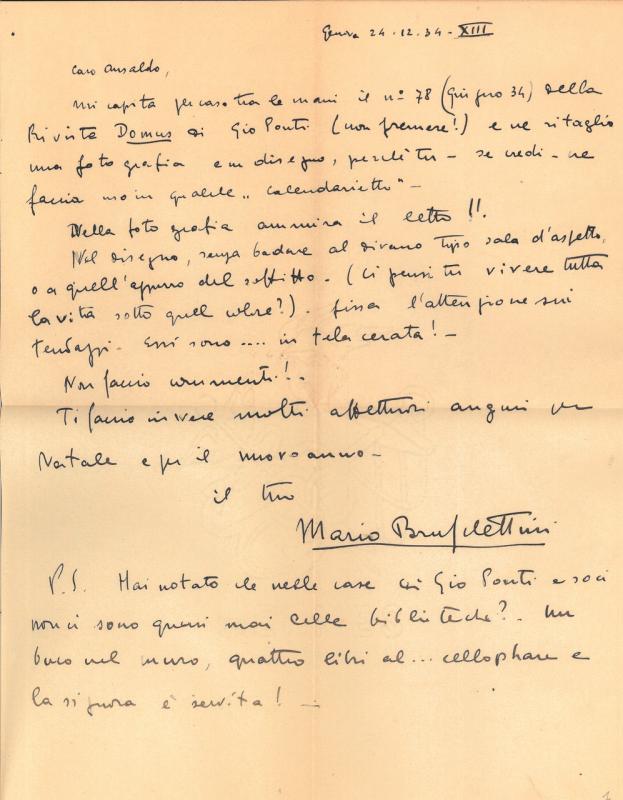 Genova 24.12.34-XIII
Caro Ansaldo,
mi capita per caso tra le mani il n° 78 (giugno 34) della
Rivista Domus di Gio Ponti (non fremere!) e ne ritaglio
una fotografia e un disegno, perché tu - se credi - ne
faccia uso in qualche "calendarietto" -
Nella fotografia ammira il letto!!.
Nel disegno, senza badare al divano tipo sala d'aspetto,
o a quell'azzurro del soffitto - (ci pensi tu vivere tutta
la vita sotto quel colore?). fissa l'attenzione sui
tendaggi - Essi sono .... in tela cerata! -
Non faccio commenti! -
Ti faccio invece molti affettuosi auguri per
Natale e per il nuovo anno -
il tuo
Mario Bruschettini
P.S. Hai notato che nelle case di Gio Ponti e soci
non ci sono quasi mai delle biblioteche?. Un
buco nel muro, quattro libri al ... cellophane e
la signora è servita! -